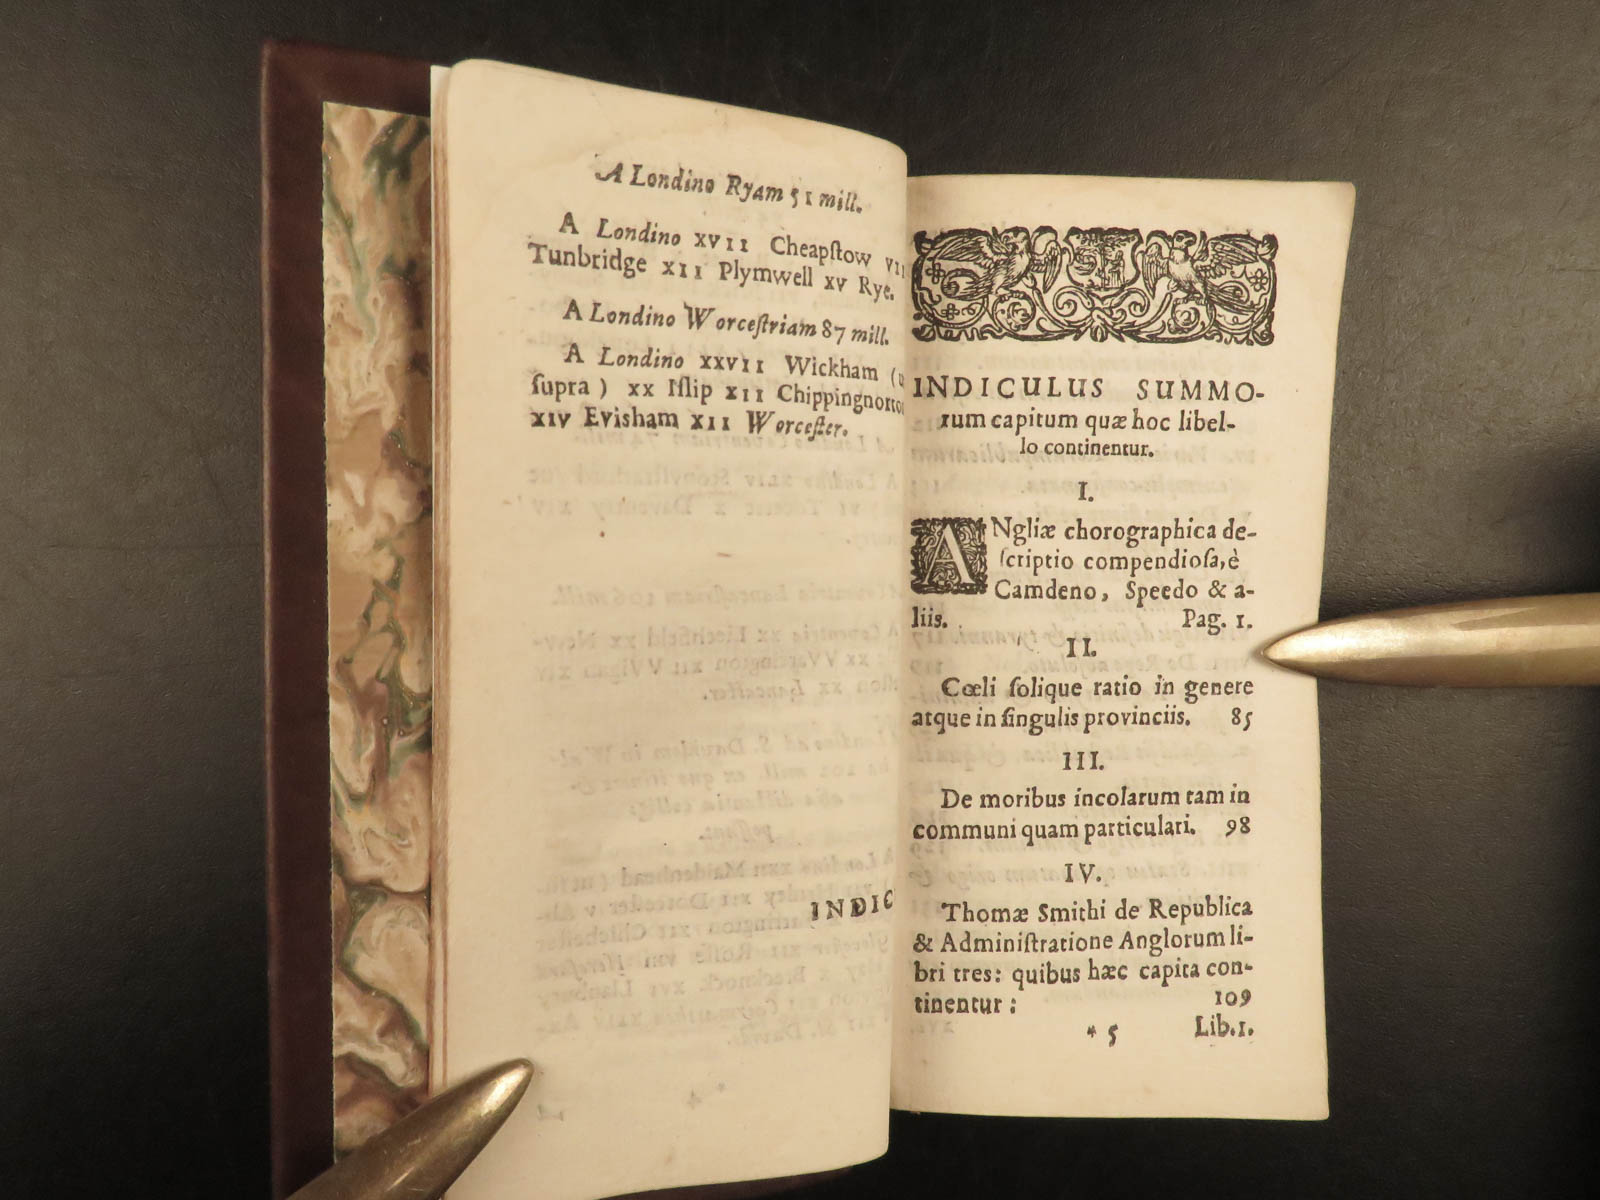 A Londino Ryam 51 mill.
A Londino XVII Cheapſtow VII
Tunbridge XII Plymwell XV Rye.
A Londino Worceſtriam 87 mill.
A Londino XXVII Wickham (u
ſupra) XX Iſlip XII Chippingnorto
XIV Eviſham XII Worceſter.
INDIC
INDICULUS SUMMO-
rum capitum quæ hoc libel-
lo continentur.
I.
ANgliæ chorographica de-
ſcriptio compendioſa, è
Camdeno, Speedo & a-
liis. Pag. 1.
II.
Cœli ſolique ratio in genere
atque in ſingulis provinciis. 85
III.
De moribus incolarum tam in
communi quam particulari. 98
IV.
Thomæ Smithi de Republica
& Adminiſtratione Anglorum li-
bri tres: quibus hæc capita con-
tinentur: 109
* 5 Lib. 1.